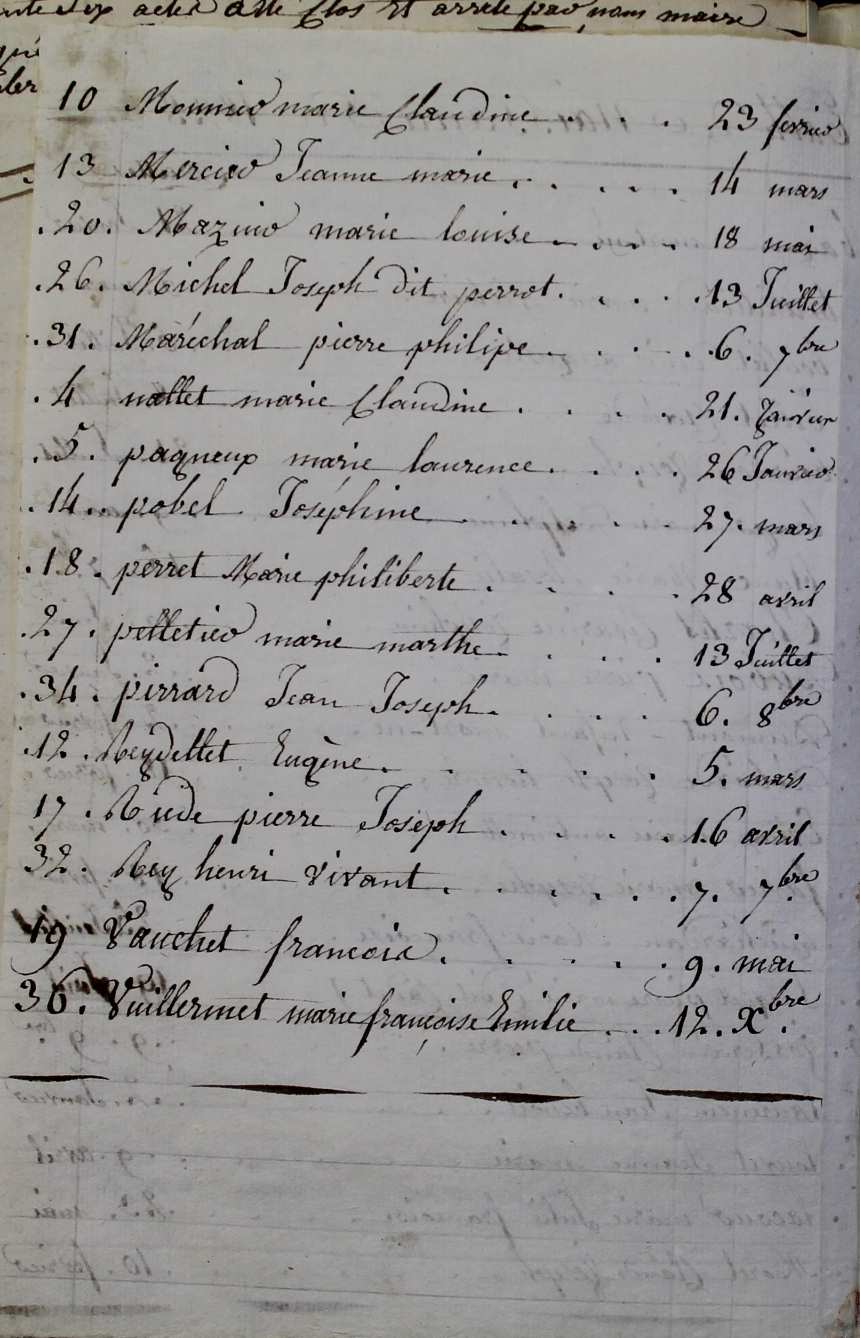 actes a été Clos et arrêté par nous maire
10 Monnier marie Claudine . . . . 23 fevrier
13 Mercier Jeanne marie . . . . . 14 mars
.20. Mazuier marie louise . . . . 18 mai
.26. Michel Joseph dit perrot . . . . 13 Juillet
.31. Maréchal pierre philipe . . . . .6. 7bre
.4 nallet marie Claudine . . . . 21. Janvier
.5. pagneux marie laurence . . . . 26 Janvier
.14.. pobel Joséphine . . . . 27. mars
.18. perret Marie philiberte . . . . 28 avril
.27. pelletier marie marthe . . . . 13 Juillet
.34. pirrard Jean Joseph . . . . 6. 8bre
.12. Reydellet Eugène . . . . . . 5. mars
17. Rude pierre Joseph . . . . . 16 avril
32. Rey henri vivant . . . . . . 7. 7bre
19 Vauchet francois . . . . . . 9. mai
36. Vuillermet marie françoise Emilie . . . 12. Xbre